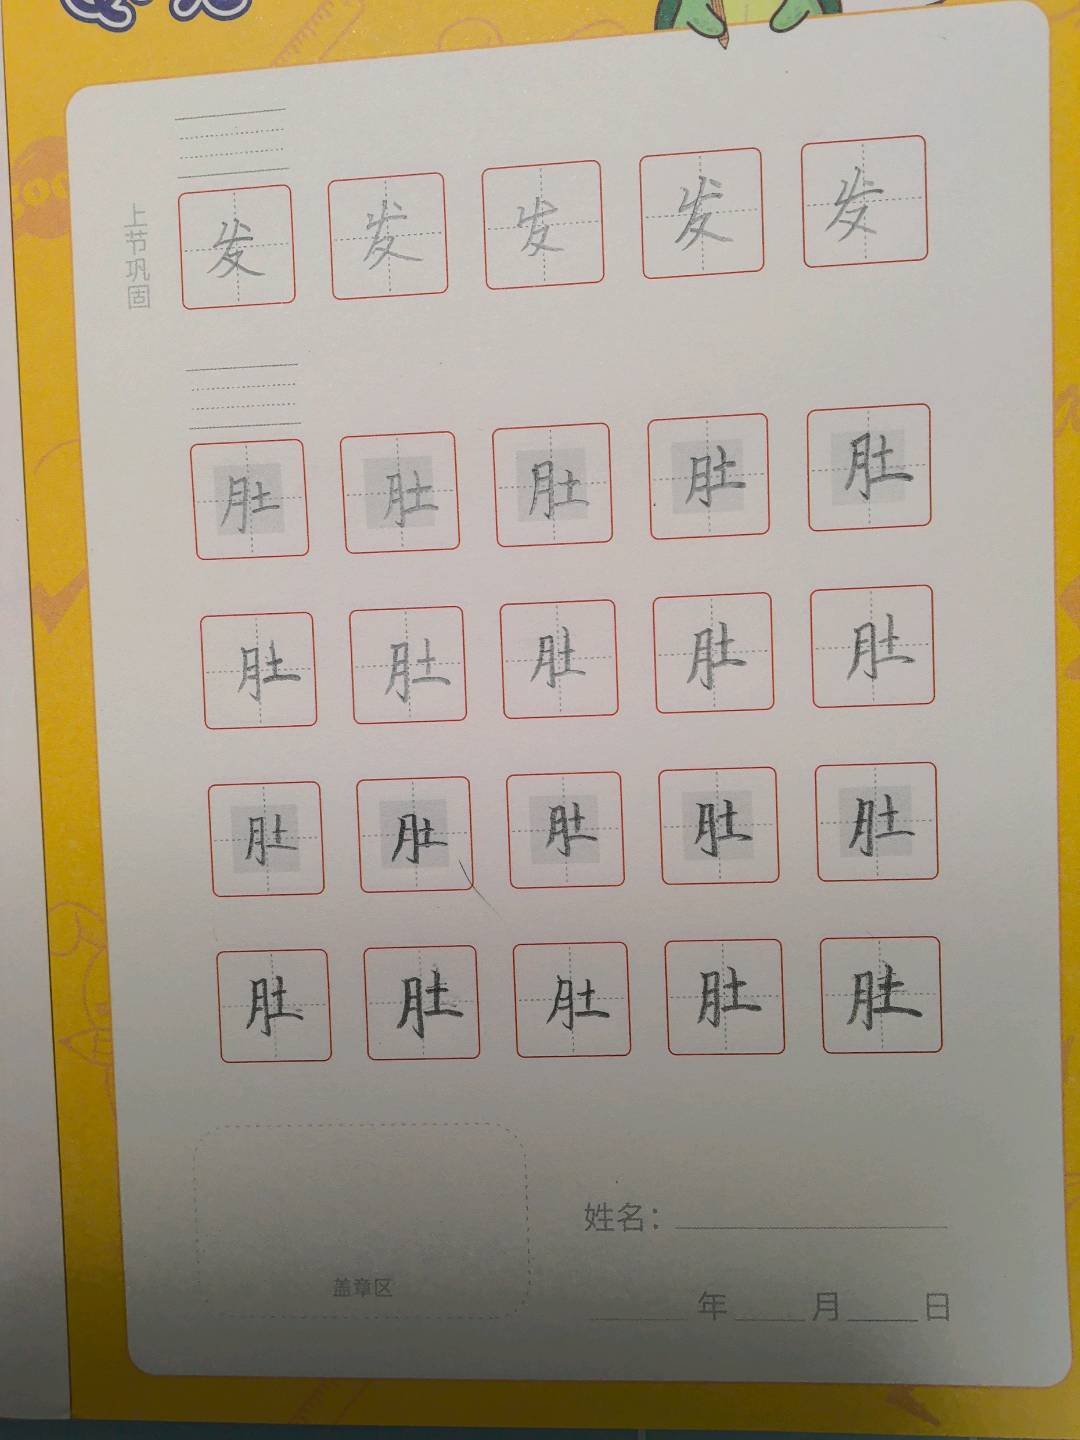 上节巩固
发 发 发 发 发
肚 肚 肚 肚 肚
肚 肚 肚 肚 肚
肚 肚 肚 肚 肚
肚 肚 肚 肚 肚
姓名：
盖章区
年 月 日